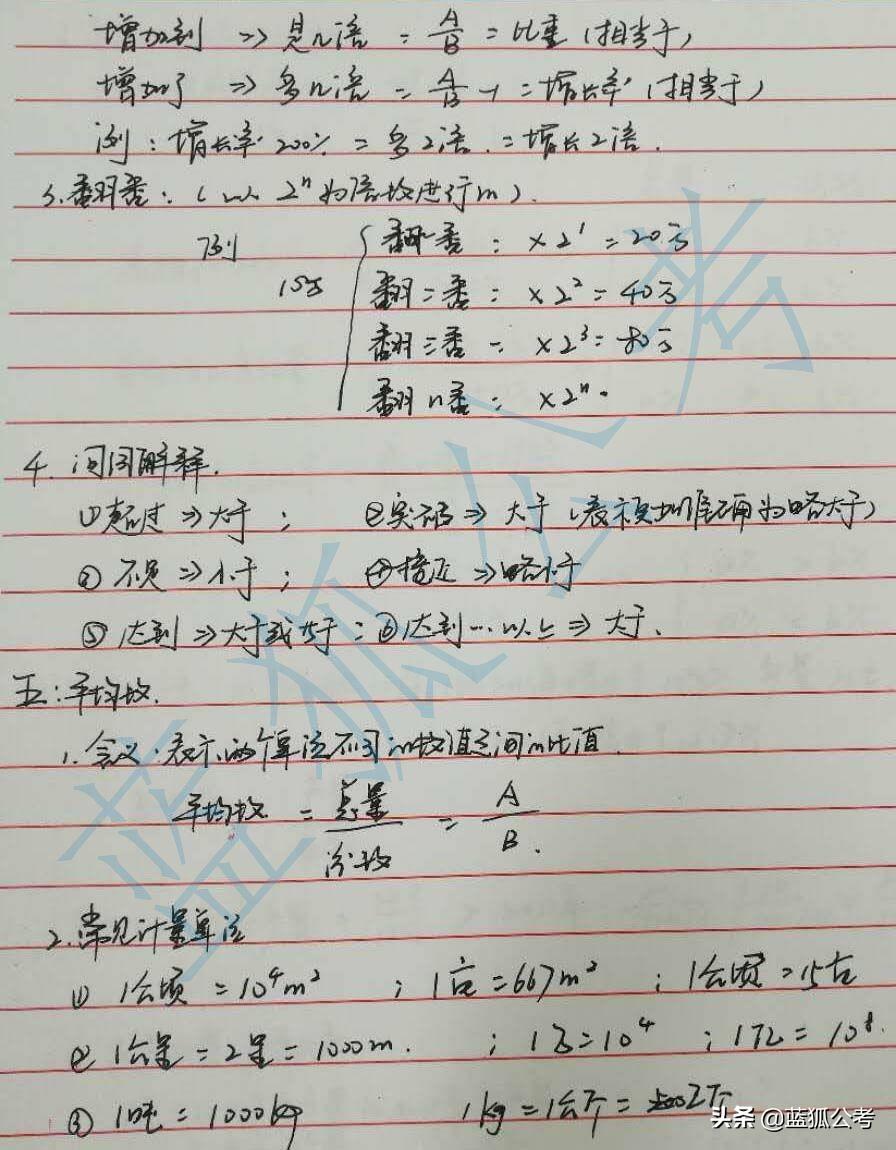 增加到 => 是n倍 = A/B = 比重 (相当于)
增加了 => 多n倍 = A/B -1 = 增长率 (相当于)
例：增长率200% = 多2倍 = 增长2倍.
3.翻番：(以 2ⁿ 为倍数进行m).
例 翻一番：×2¹ = 20万
10万 翻二番：×2² = 40万
翻三番 = ×2³ = 80万
翻n番：×2ⁿ.
4. 词词解释.
①超过 => 大于； ②突破 => 大于 (表示更加准确为略大于)
③ 不足 => 小于； ④接近 => 略小于
⑤ 达到 => 大于或等于；⑥达到…以上 => 大于.
五：平均数.
1.含义：表示两个单位不同的数值之间的比值.
平均数 = 总量/份数 = A/B.
2.常见计量单位
① 1公顷 = 10⁴m² ；1亩=667m² ；1公顷=15亩
② 1公里 = 2里 = 1000m. ；1万=10⁴ ；1亿=10⁸.
③ 1吨 = 1000kg 1kg = 1公斤 = 2斤
蓝狐公考
头条 @蓝狐公考